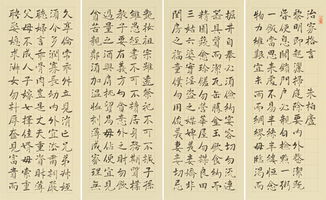 治家格言　朱柏廬
黎明即起灑掃庭除要內外整潔既
昏便息關鎖門戶必親自檢點一粥
一飯當思來處不易半絲半縷恆念
物力維艱宜未雨而綢繆毋臨渴而
掘井自奉必須儉約宴客切勿流連
器具質而潔瓦缶勝金玉飲食約而
精園蔬愈珍饈勿營華屋勿謀良田
三姑六婆實淫盜之媒婢美妾嬌非
閨房之福童僕勿用俊美妻妾切忌
豔妝祖宗雖遠祭祀不可不誠子孫
雖愚經書不可不讀居身務期質樸
教子要有義方勿貪意外之財勿飲
過量之酒與肩挑貿易毋佔便宜見
貧苦親鄰須加溫恤刻薄成家理無
久享倫常乖舛立見消亡兄弟叔姪
須分多潤寡長幼內外宜法肅辭嚴
聽婦言乖骨肉豈是丈夫重資財薄
父母不成人子嫁女擇佳婿毋索重
聘娶媳求淑女勿計厚奩見富貴而